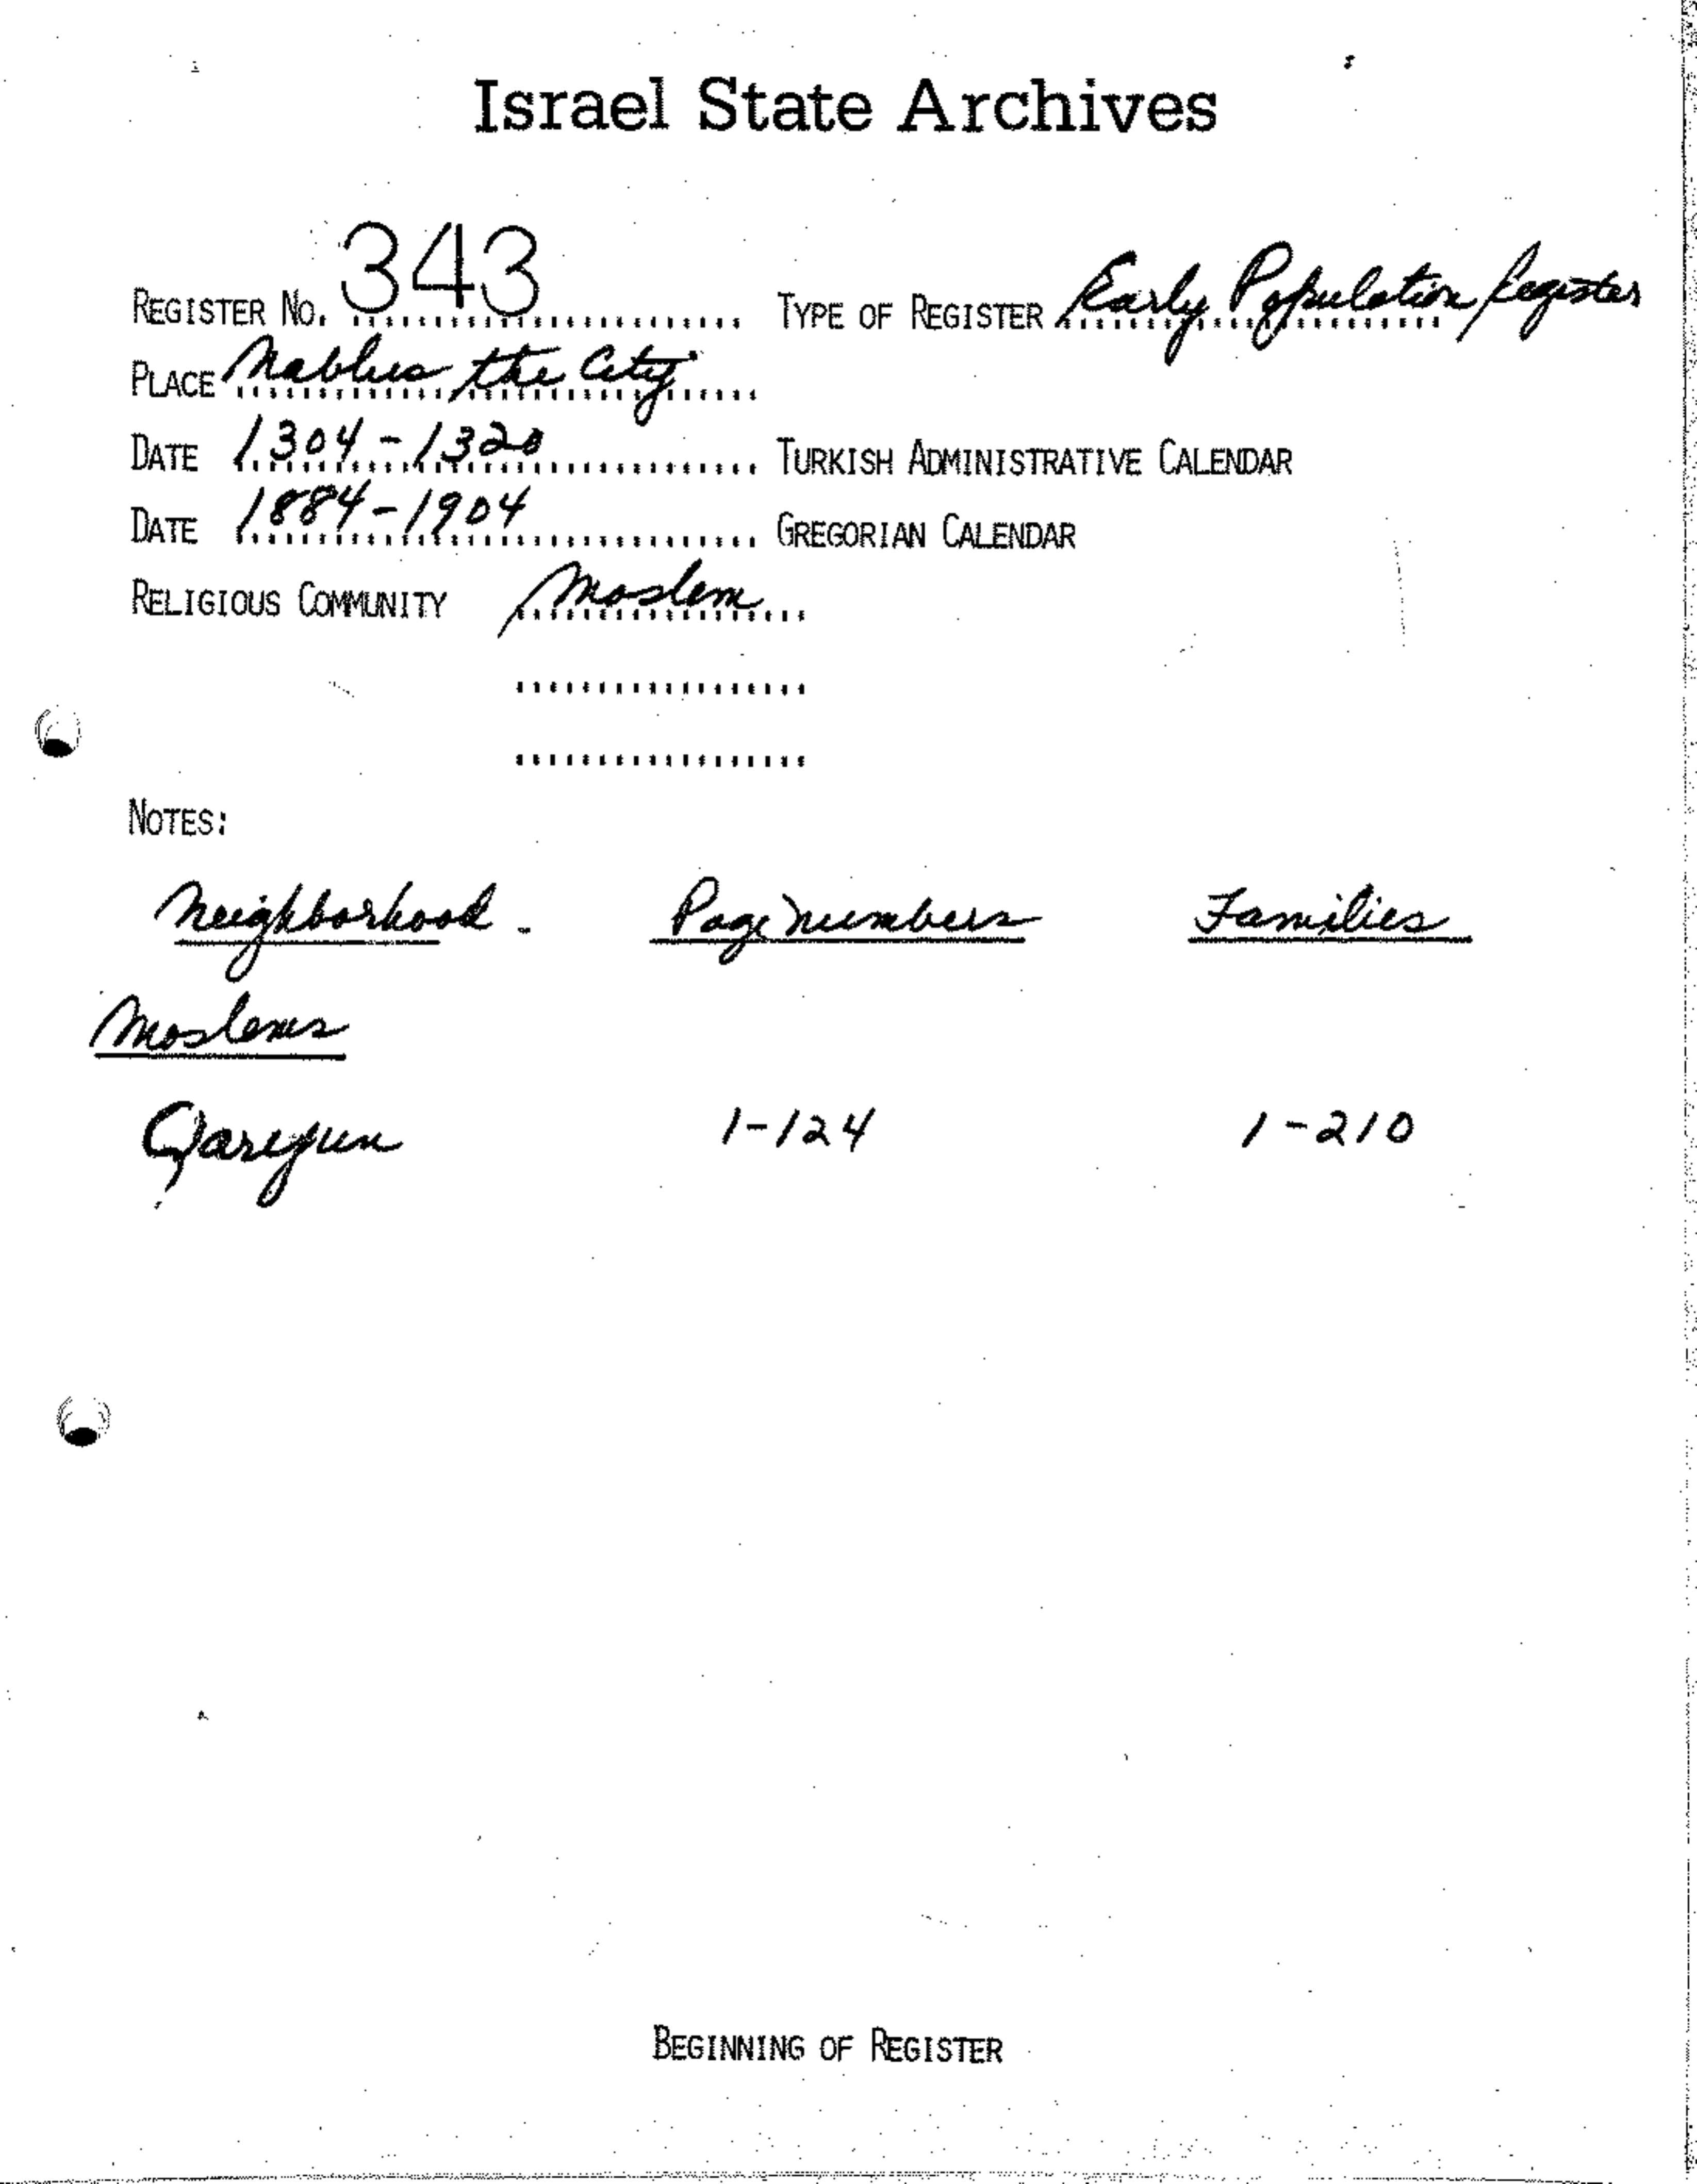 Israel State Archives
REGISTER NO. 343 TYPE OF REGISTER Early Population Register
PLACE Nablus the City
DATE 1304-1320 TURKISH ADMINISTRATIVE CALENDAR
DATE 1884-1904 GREGORIAN CALENDAR
RELIGIOUS COMMUNITY Moslem
NOTES:
Neighborhood - Page numbers Families
Moslems
Qareyun 1-124 1-210
BEGINNING OF REGISTER